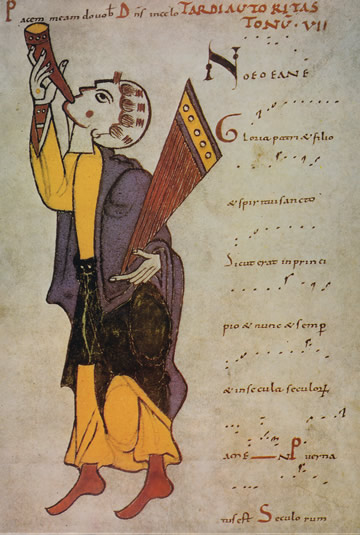 Pacem meam do vob Dns in celo TARDI AUTORITAS
TONU. VII
NOEOEANE
Gloria patri & filio
& spiritui sancto
Sicut erat in princi
pio & nunc & semp
& in secula seculorum
AmE — N P
Seculorum